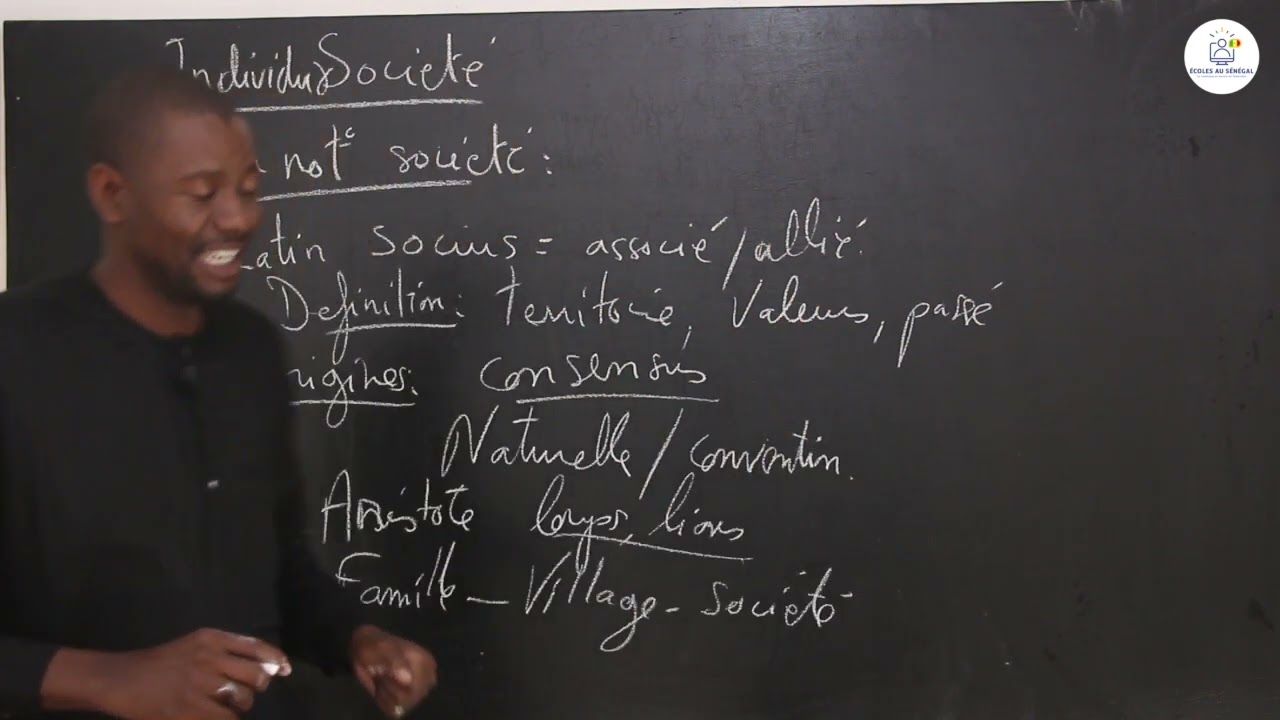 Individu & Société
not° société :
Latin socius = associé / allié.
Définition : territoire, Valeurs, passé
origines : consensus
Naturelle / convention.
Aristote loups, lions
Famille - Village - société
ÉCOLES AU SÉNÉGAL